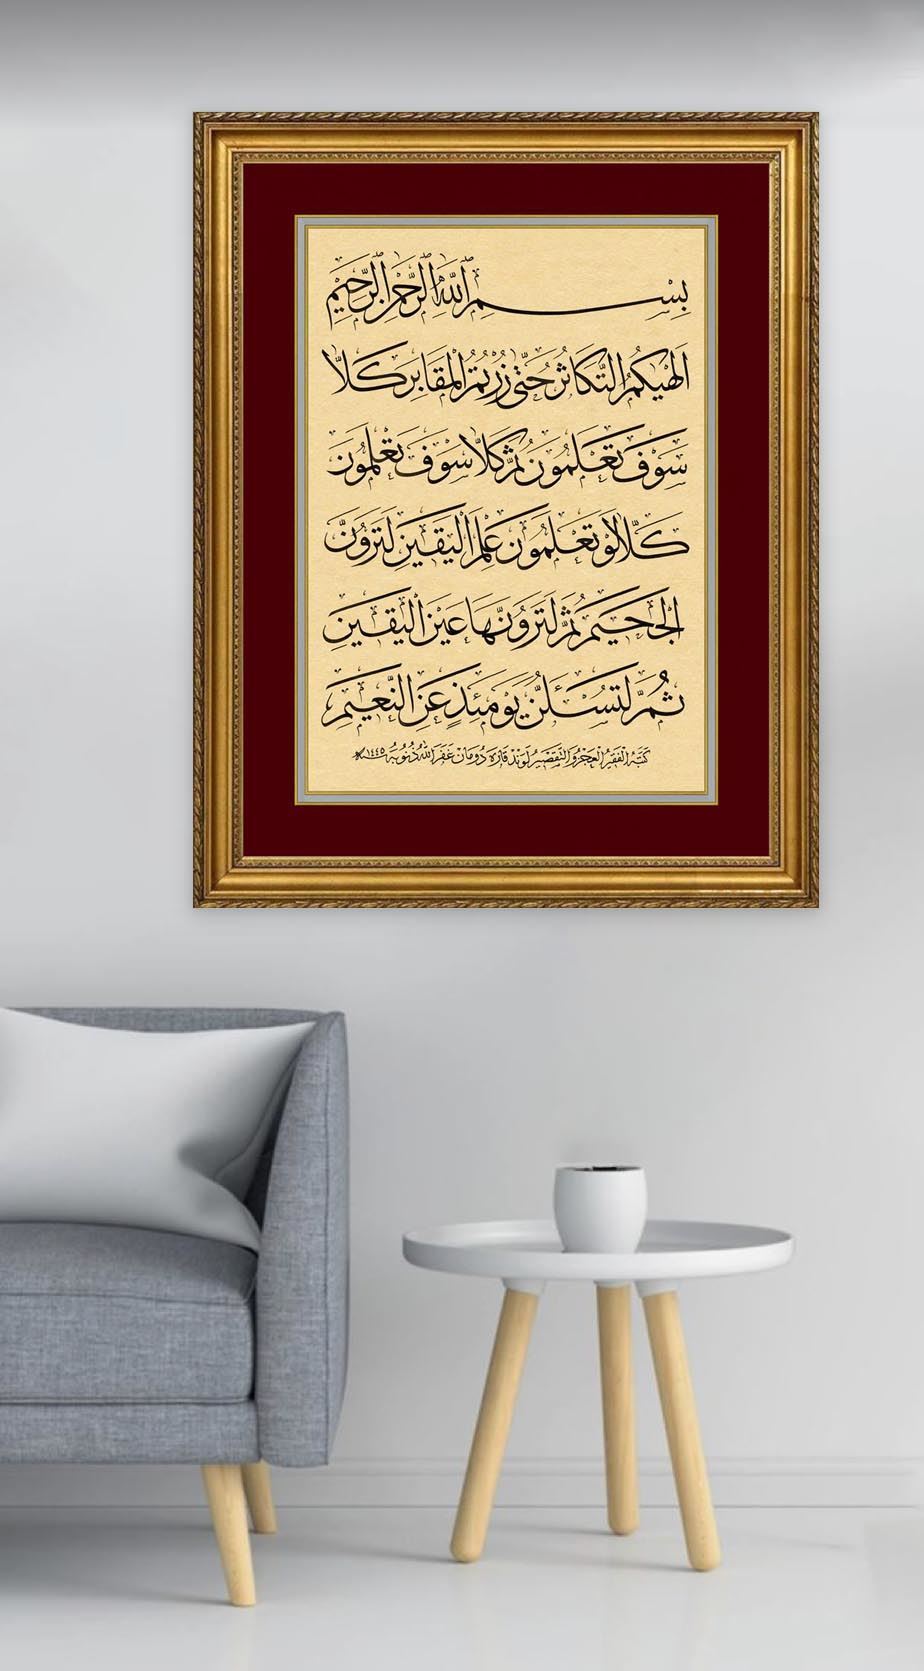 بِسْمِ اللّٰهِ الرَّحْمٰنِ الرَّحِيمِ
اَلْهٰيكُمُ التَّكَاثُرُ حَتّٰى زُرْتُمُ الْمَقَابِرَ كَلَّا
سَوْفَ تَعْلَمُونَ ثُمَّ كَلَّا سَوْفَ تَعْلَمُونَ
كَلَّا لَوْ تَعْلَمُونَ عِلْمَ الْيَقِينِ لَتَرَوُنَّ
الْجَحِيمَ ثُمَّ لَتَرَوُنَّهَا عَيْنَ الْيَقِينِ
ثُمَّ لَتُسْـَٔلُنَّ يَوْمَئِذٍ عَنِ النَّعِيمِ
كتبه الفقير العجز والتقصير لوند قاره دومان غفر الله ذنوبه ١٤٤٥